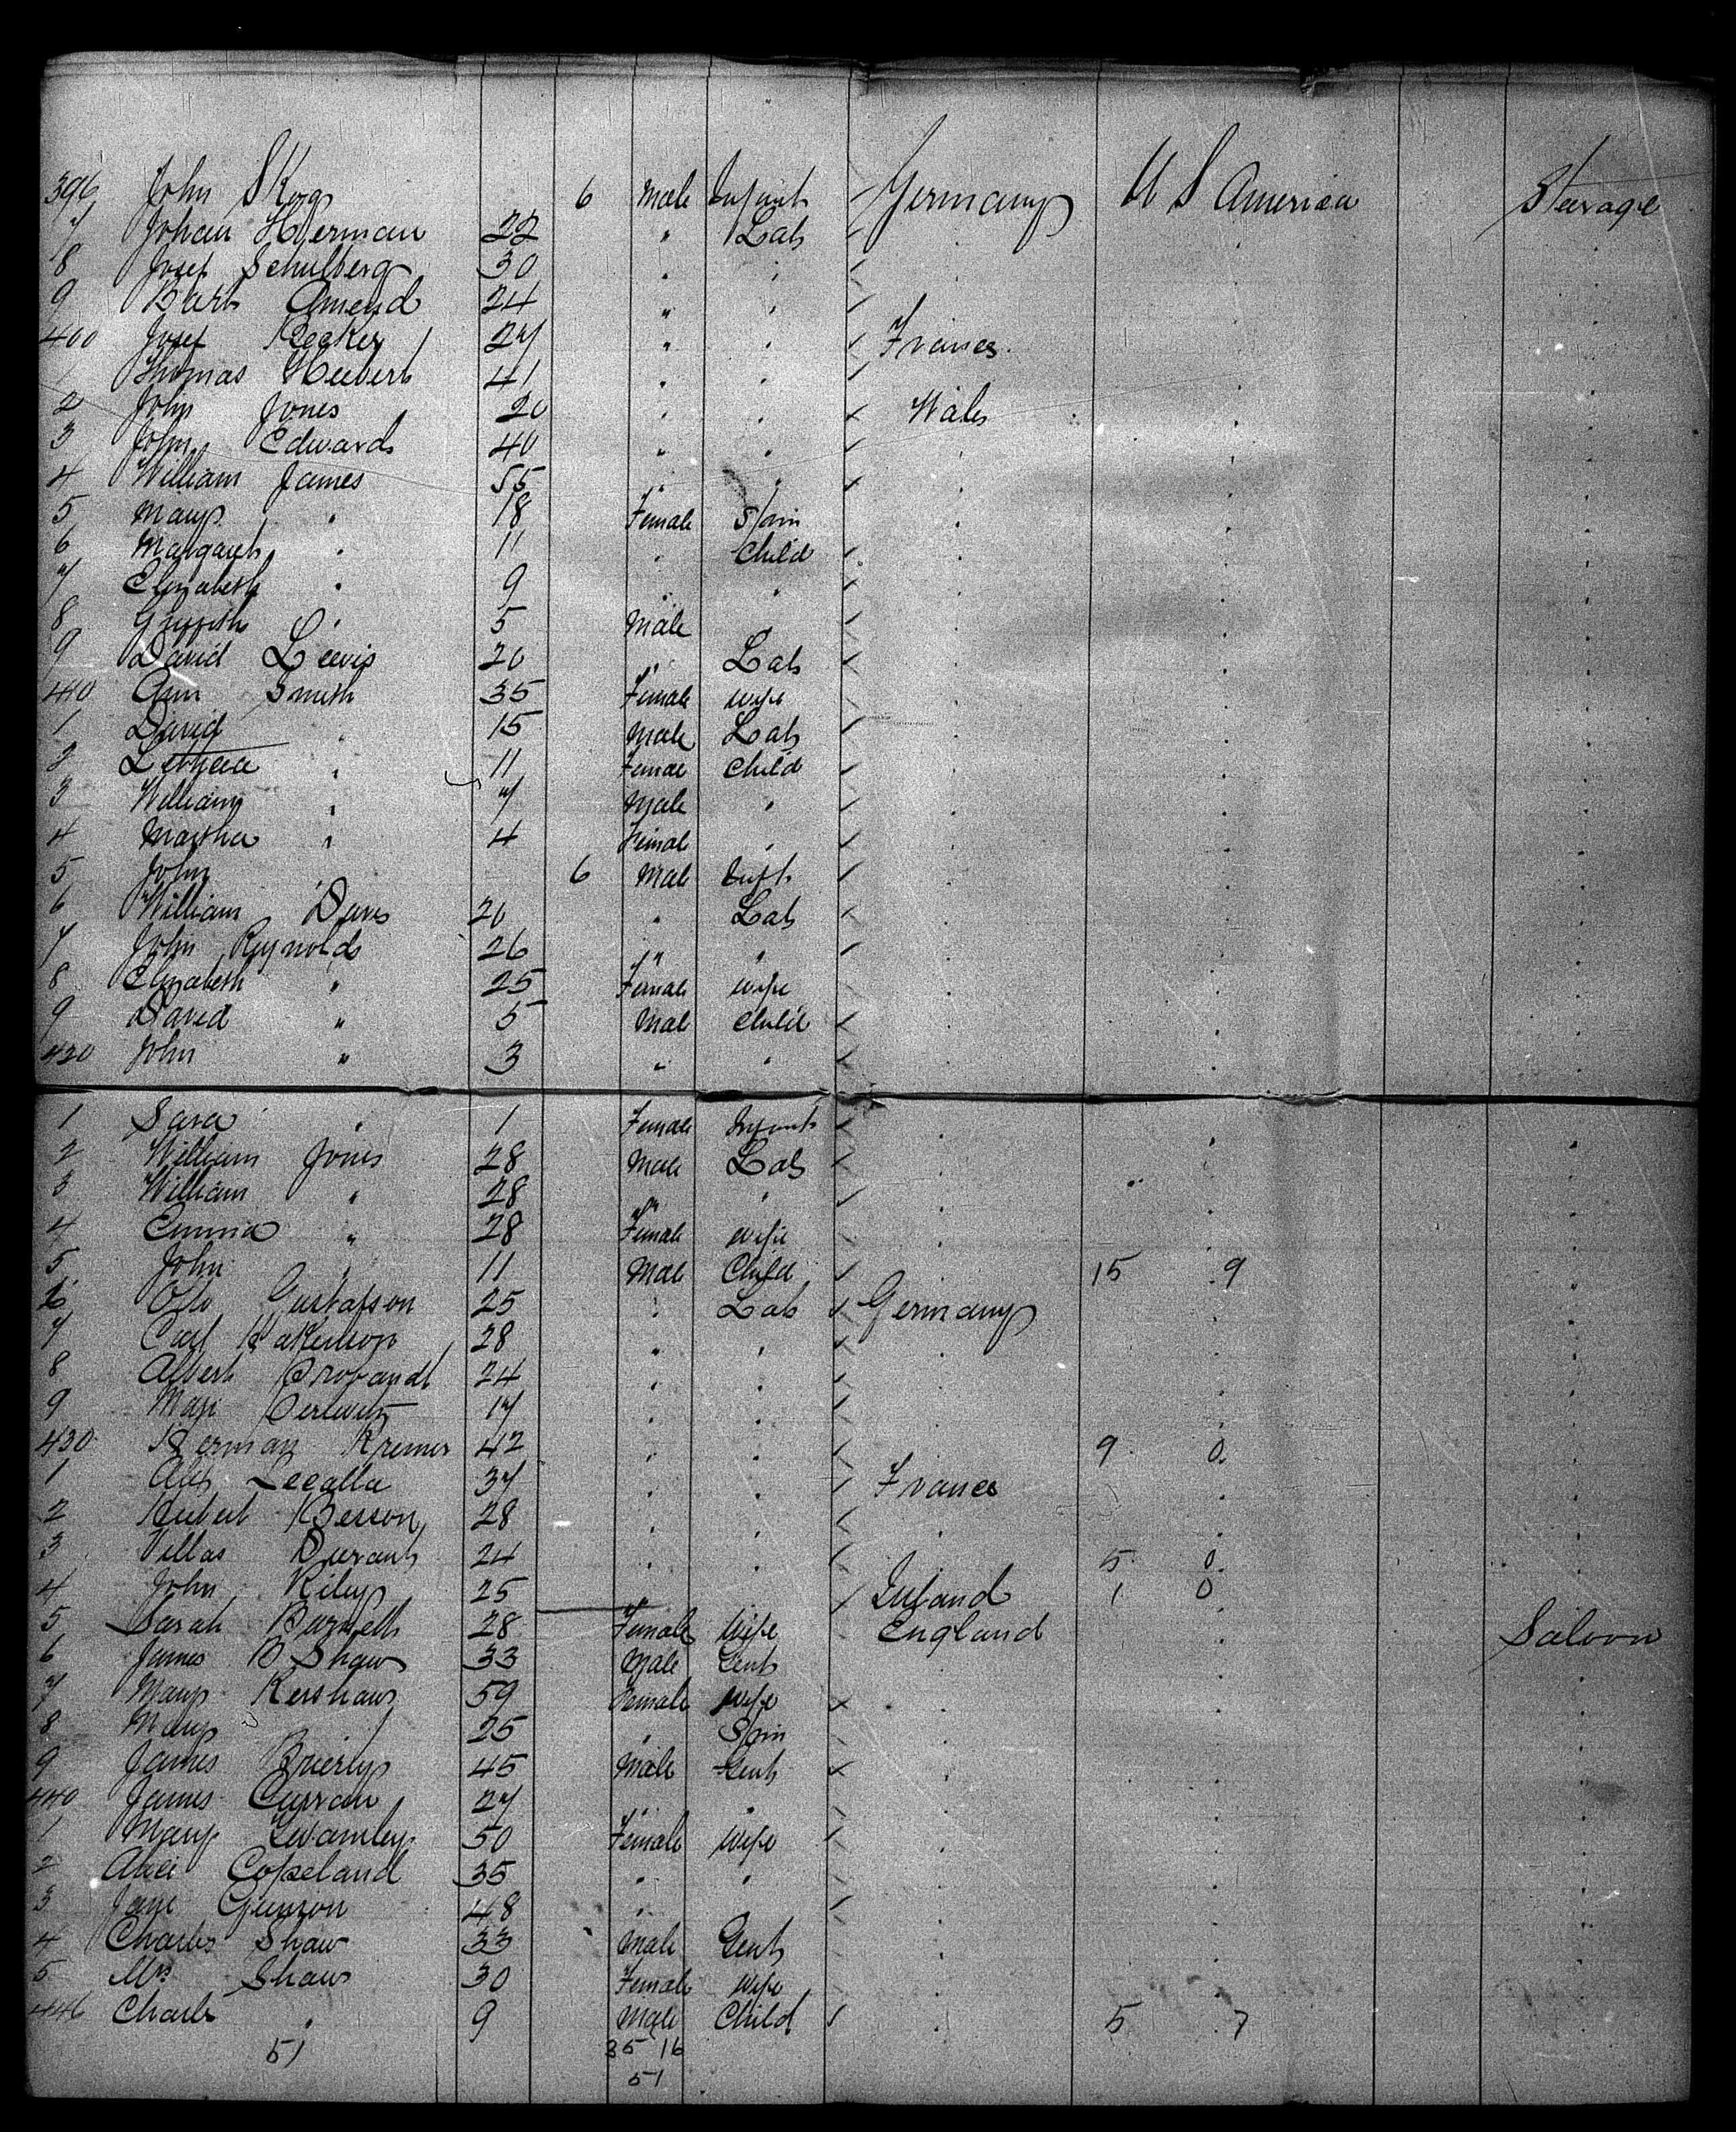 396 John Skog 6 Male Infant Germany U S America Steerage
7 Johan Herman 22 " Lab
8 Josef Schulberg 30 " "
9 Amend 24 " "
400 Josef Becker 27 " " France
1 Thomas Heebert 41 " "
2 John Jones 20 " " Wales
3 John Edwards 40 " "
4 William James 55 " "
5 Mary " 18 Female Spin
6 Margaret " 11 " Child
7 Elizabeth " 9 " "
8 Griffith " 5 Male "
9 David Lewis 20 " Lab
410 Ann Smith 35 Female wife
1 David " 15 Male Lab
2 Letticia " 11 Female Child
3 William " 7 Male "
4 Martha " 4 Female "
5 John " 6 Male Inft
6 William Davis 20 " Lab
7 John Reynolds 26 " "
8 Elizabeth " 25 Female wife
9 David " 5 Male Child
420 John " 3 " "
1 Sara " 1 Female Infant
2 William Jones 28 Male Lab
3 William " 28 " "
4 Emma " 28 Female wife
5 John " 11 Male Child 15 9
6 Gustafson 25 " Lab Germany
7 Carl 28 " "
8 Albert Brobandt 24 " "
9 17 " "
430 Herman Kremer 42 " " 9 0
1 Alex Lecalla 37 " " France
2 Hubert Besson 28 " "
3 Villas Durant 24 " " 5 0
4 John Riley 25 " " Ireland 1 0
5 Sarah 28 Female Wife England Saloon
6 James B Shaw 33 Male Gent
7 Mary Kershaw 59 Female wife
8 Mary " 25 " Spin
9 James Brierly 45 Male Gent
440 James Curran 27 " "
1 Mary Gwamley 50 Female wife
2 Alice Copeland 35 " "
3 Jane Gunson 48 "
4 Charles Shaw 33 Male Gent
5 Mrs Shaw 30 Female wife
446 Charles " 9 Male Child 5 7
51 35 16
51